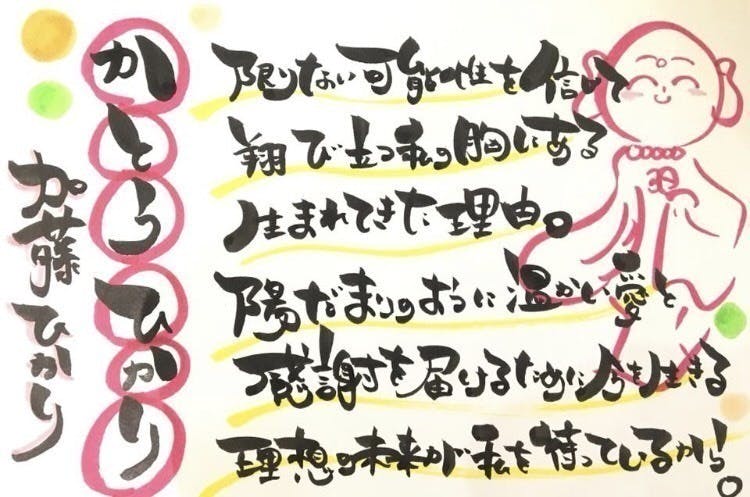 加藤ひかり
かとうひかり
限りない可能性を信じて
翔び立つ私の胸にある
生まれてきた理由。
陽だまりのように温かい愛と
感謝を届けるために今を生きる
理想の未来が私を待っているから。